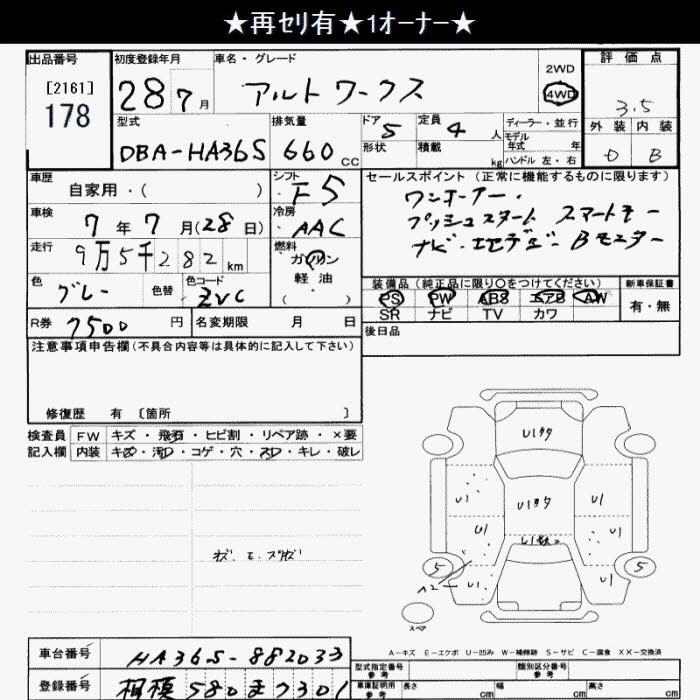 ★再セリ有★1オーナー★
出品番号
[2161]
178
初度登録年月
28年7月
車名・グレード
アルト ワークス
2WD
4WD
評価点
3.5
外装 内装
D B
型式
DBA-HA36S
排気量
660 CC
ドア 5
形状
定員 4 人
積載 kg
ディーラー・並行
モデル
年式 年
ハンドル 左・右
車歴
自家用・( )
シフト
F5
セールスポイント (正常に機能するものに限ります)
ワンオーナー・
プッシュスタート スマートキー
ナビ・地デジ・Bモニター
車検
7年7月(28日)
冷房
AAC
走行
9万5千282km
燃料
ガソリン
軽油
( )
色
グレー
色替
色コード
ZVC
装備品 (純正品に限り○をつけてください)
PS PW ABS エアB AW
SR ナビ TV カワ
新車保証書
有・無
R券 7500円
名変期限 月 日
後日品
注意事項申告欄 (不具合内容等は具体的に記入して下さい)
修復歴 有 〔箇所 〕
検査員 FW キズ・飛石・ヒビ割・リペア跡・×要
記入欄 内装 キズ・汚れ・コゲ・穴・スレ・キレ・破レ
U1タタ
U1 U1タタ U1
U1 U1
5 5
A2 U1 U1
スペア
A-キズ E-エクボ U-凹み W-補修跡 S-サビ C-腐食 XX-交換済
車台番号 HA36S-882033
登録番号 相模580ま7301
型式指定番号
参考
類別区分番号
参考
車庫証明用
参考
長さ cm 幅 cm 高さ cm